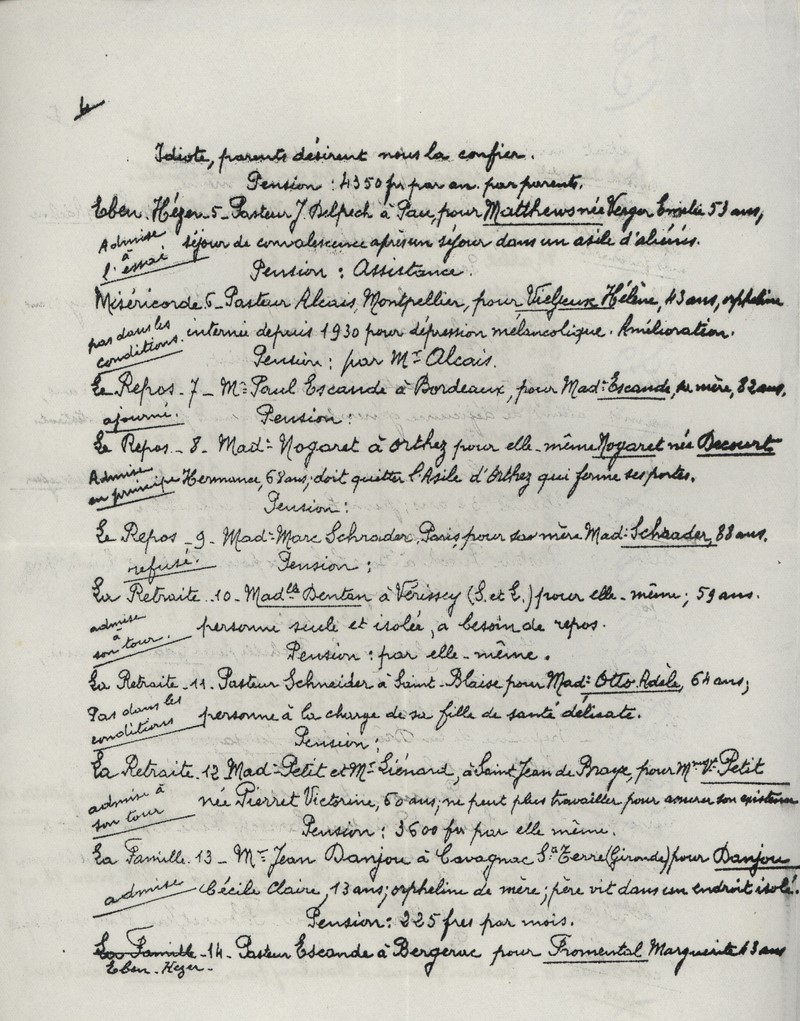 Idiote, parents désirent nous la confier.
Pension : 4350 frs par an. par parents.
Eben. Hézer. 5 - Pasteur J. Delpech à Pau, pour Matthews née Verger Emilie 53 ans,
Admise à l'essai séjour de convalescence après un séjour dans un asile d'aliénés.
Pension : Assistance.
Miséricorde 6 - Pasteur Alcais, Montpellier, pour Vieljeux Hélène, 43 ans, orpheline
pas dans les conditions. internée depuis 1930 pour dépression mélancolique. Amélioration.
Pension : par Mr Alcais.
Le Repos - 7 - Mr Paul Escande à Bordeaux, pour Made Escande, sa mère, 82 ans.
ajourné. Pension :
Le Repos - 8 - Made Nogaret à Orthez pour elle-même Nogaret née Decourt
Admise en principe Hermance, 68 ans, doit quitter l'Asile d'Orthez qui ferme ses portes.
Pension :
Le Repos - 9 - Made Marc Schrader, Paris, pour sa mère Made Schrader, 88 ans.
refusé. Pension :
La Retraite - 10 - Madelle Dentan à Vérissey (S. et L.) pour elle-même ; 59 ans.
admise à son tour. personne seule et isolée, a besoin de repos.
Pension : par elle-même.
La Retraite - 11 - Pasteur Schneider à Saint-Blaise pour Made Otto Adèle, 64 ans ;
Pas dans les conditions personne à la charge de sa fille de santé délicate.
Pension :
La Retraite. 12 Made Petit et Mr Liénard, à Saint Jean de Braye, pour Mme Ve Petit
admise à son tour née Pierret Victorine, 60 ans ; ne peut plus travailler pour assurer son existence
Pension : 3600 frs par elle même.
La Famille. 13 - Mr Jean Danjou à Cavagnac Ste Terre (Gironde) pour Danjou
admise Cécile Claire, 13 ans ; orpheline de mère ; père vit dans un endroit isolé.
Pension : 225 frcs par mois.
La Famille - 14 - Pasteur Escande à Bergerac pour Fromental Marguerite 43 ans
Eben-Hezer -